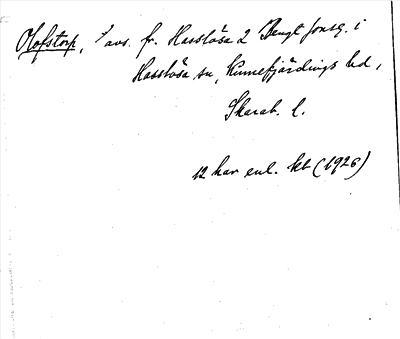 Olofstorp, 1 avs. fr. Hasslösa 2 Bengt Jonsg. i
Hasslösa sn, Kinnefjärdings hd,
Skarab. l.
12 har enl. kb (1926)